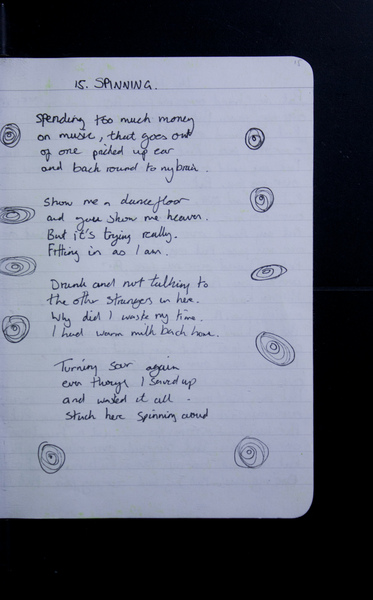 15. SPINNING.
Spending too much money
on music, that goes out
of one pricked up ear
and back round to my brain.
Show me a dancefloor
and you show me heaven.
But it's trying really.
Fitting in as I am.
Drunk and not talking to
the other strangers in here.
Why did I waste my time.
I had warm milk back home.
Turning sour again
even though I saved up
and wasted it all.
Stuck here spinning around